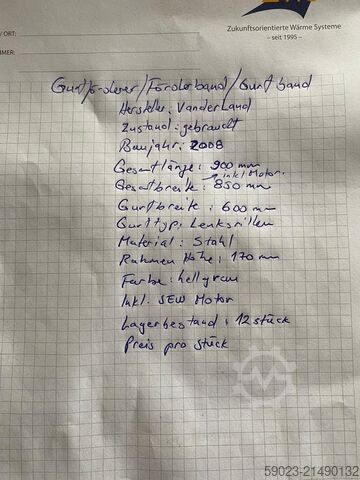 / ORT:
MMER:
Zukunftsorientierte Wärme Systeme
– seit 1995 –
Gurtförderer/Förderband/Gurtband
Hersteller: Vanderland
Zustand: gebraucht
Baujahr: 2008
Gesamtlänge: 900 mm
inkl Motor.
Gesamtbreite: 850 mm
Gurtbreite: 600 mm
Gurttyp: Lenksrillen
Material: Stahl
Rahmen Höhe: 170 mm
Farbe: hellgrau
Inkl. SEW Motor
Lagerbestand: 12 stück
Preis pro stück
59023-21490132